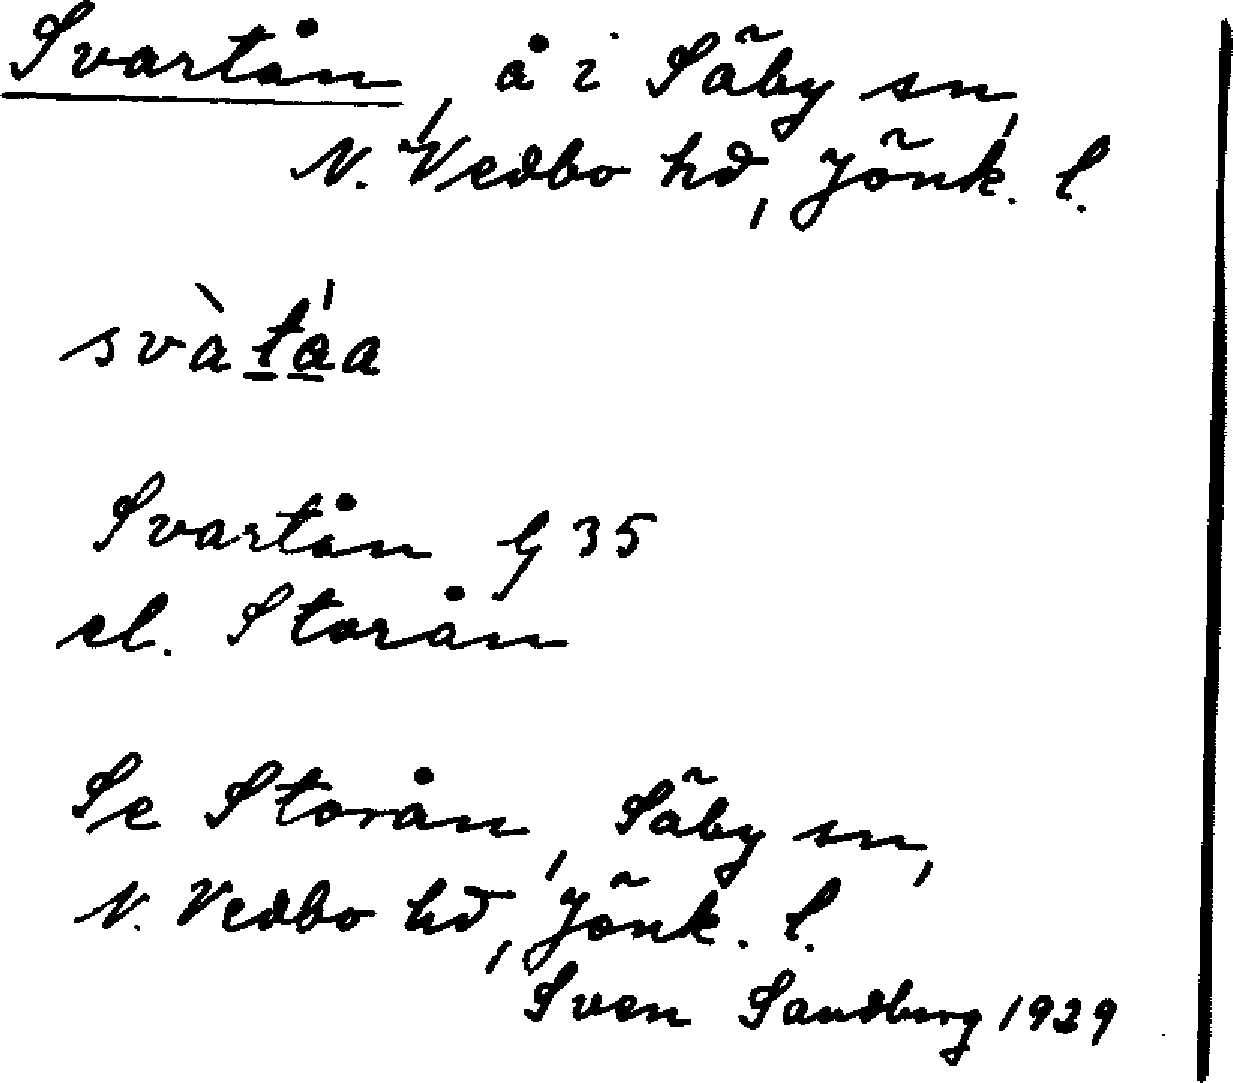 Svartån, å i Säby sn,
N. Vedbo hd, Jönk. l.
svàtáa
Svartån G 35
el. Storån
Se Storån, Säby sn,
N. Vedbo hd, Jönk. l.
Sven Sandberg 1929